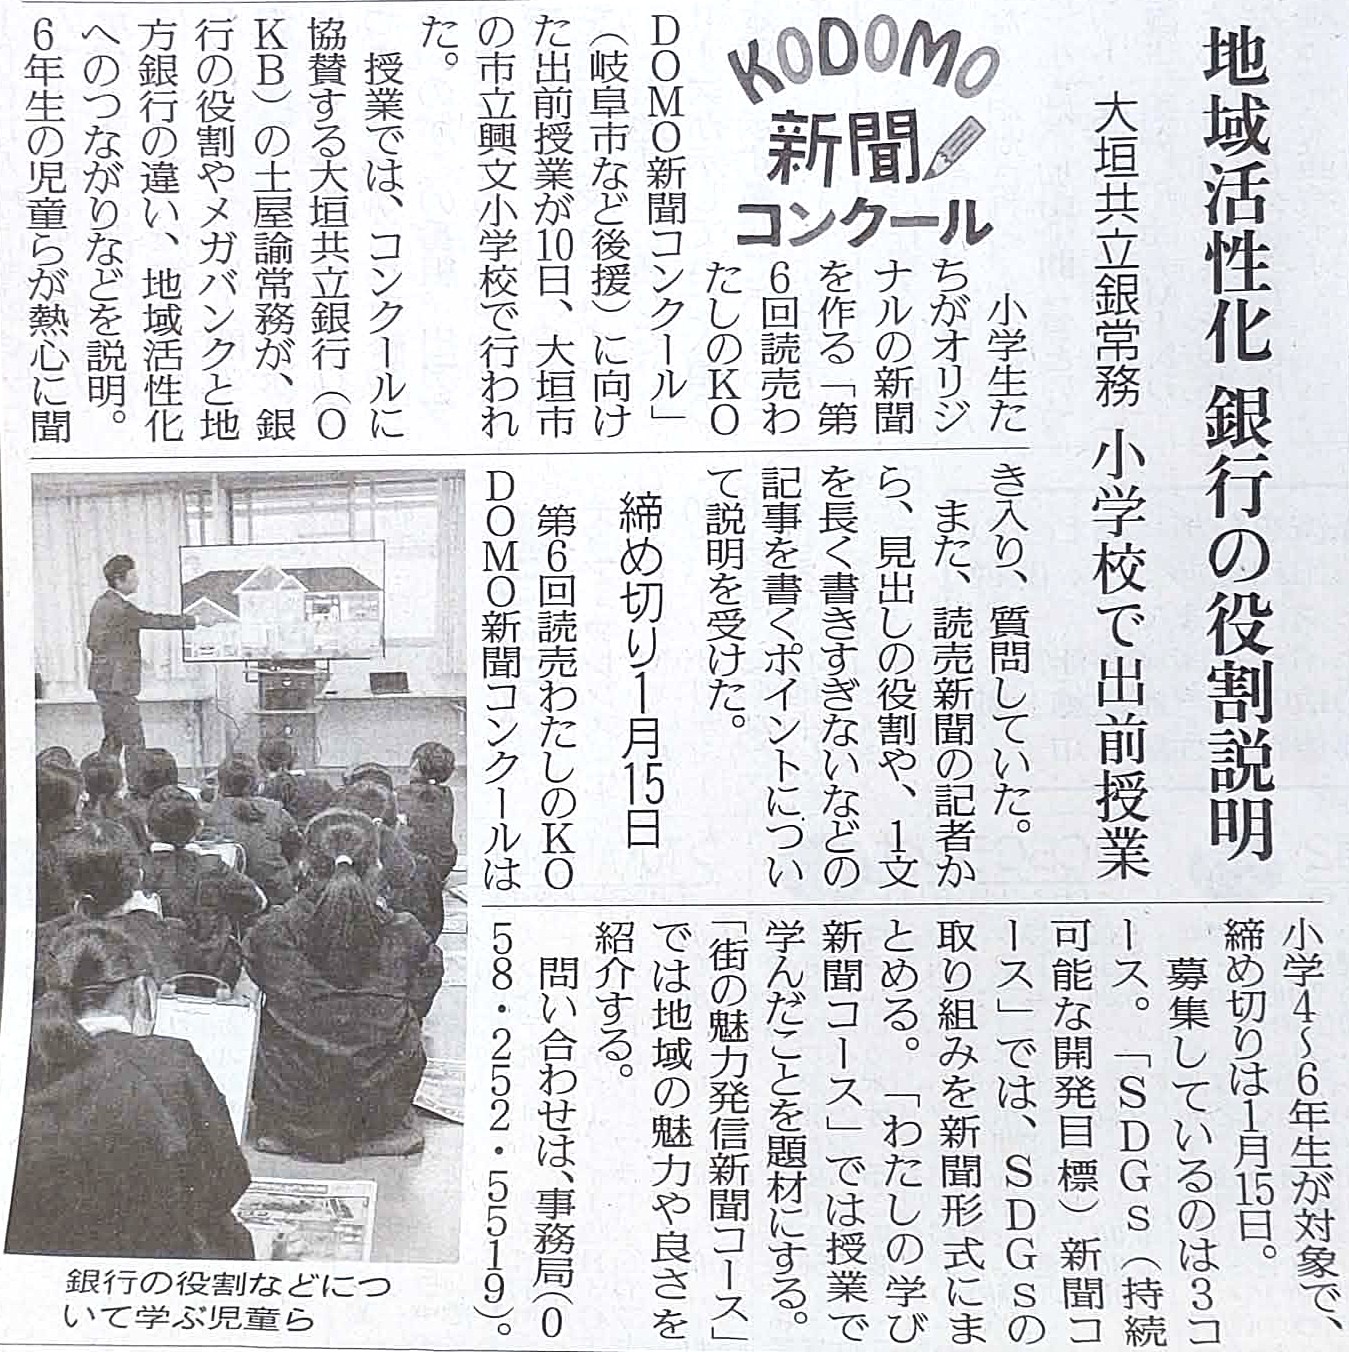 地域活性化 銀行の役割説明
大垣共立銀常務 小学校で出前授業
KODOMO
新聞
コンクール
小学生た
ちがオリジ
ナルの新聞
を作る「第
6回読売わ
たしのKO
DOMO新聞コンクール」
（岐阜市など後援）に向け
た出前授業が10日、大垣市
の市立興文小学校で行われ
た。
授業では、コンクールに
協賛する大垣共立銀行（O
KB）の土屋諭常務が、銀
行の役割やメガバンクと地
方銀行の違い、地域活性化
へのつながりなどを説明。
6年生の児童らが熱心に聞
き入り、質問していた。
また、読売新聞の記者か
ら、見出しの役割や、1文
を長く書きすぎないなどの
記事を書くポイントについ
て説明を受けた。
締め切り1月15日
第6回読売わたしのKO
DOMO新聞コンクールは
小学4～6年生が対象で、
締め切りは1月15日。
募集しているのは3コ
ース。「SDGs（持続
可能な開発目標）新聞コ
ース」では、SDGsの
取り組みを新聞形式にま
とめる。「わたしの学び
新聞コース」では授業で
学んだことを題材にする。
「街の魅力発信新聞コース」
では地域の魅力や良さを
紹介する。
問い合わせは、事務局（0
58・252・5519）。
銀行の役割などにつ
いて学ぶ児童ら